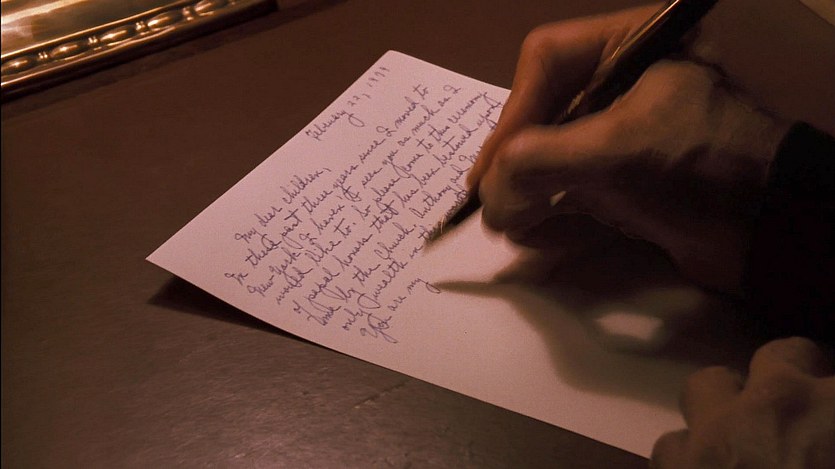 February 22, 1979
My dear children,
In the past three years since I moved to
New York, I haven't seen you as much as I
would like to. So please come to this ceremony
of papal honors that has been bestowed upon
me by the Church. Anthony and
only wealth in this
You are my